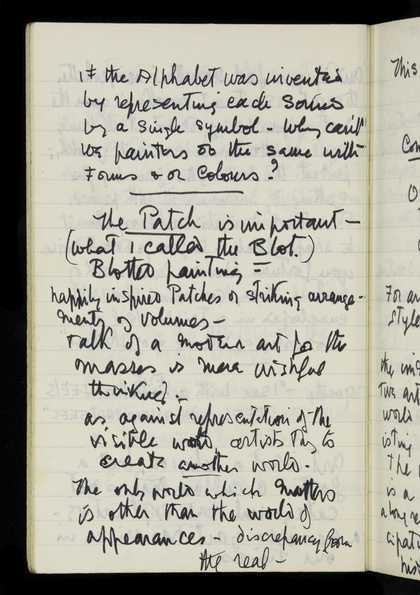 if the Alphabet was invented
by representing each sound
by a single symbol - why can't
we painters do the same with
Forms & or Colours?
The Patch is important -
(what I called the Blot.)
Blotted painting =
happily inspired Patches or striking arrange-
ments of volumes -
Talk of a modern art for the
masses is mere wishful
thinking. -
as against representation of the
visible world, artists try to
create another world.
The only world which matters
is other than the world of
appearances - discrepancy from
the real -
This
Con
O
For an
style
the un
Two art
work
isting
The
is a
along re
cipat
his